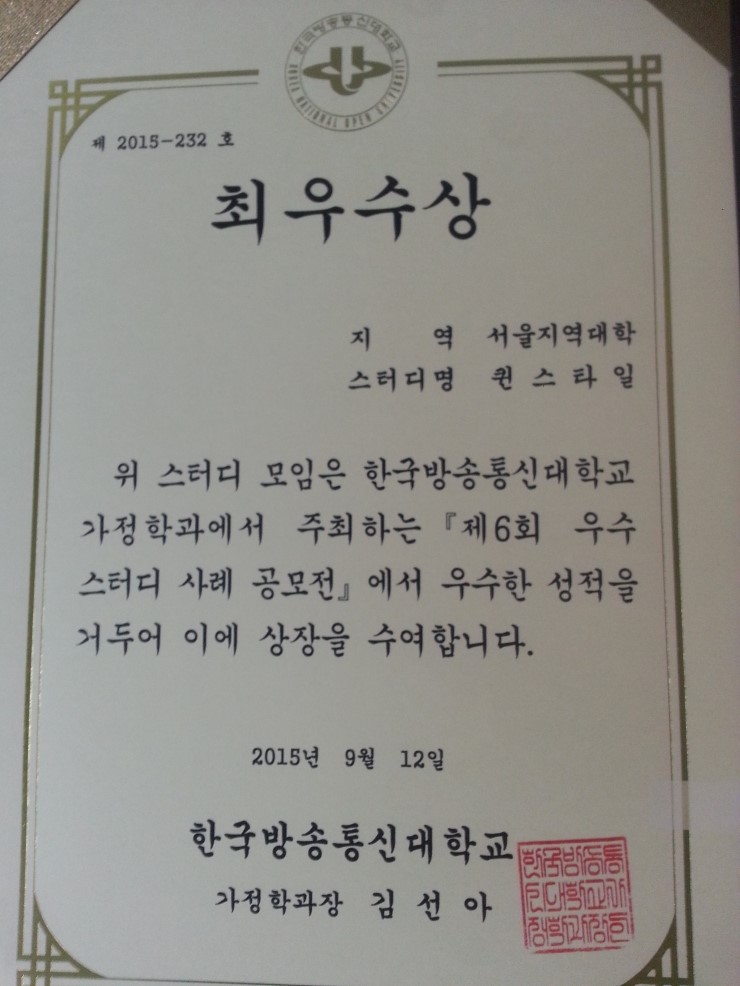 한국방송통신대학교
KOREA NATIONAL OPEN UNIVERSITY
제 2015-232 호
최우수상
지 역 서울지역대학
스터디명 퀸 스 타 일
위 스터디 모임은 한국방송통신대학교
가정학과에서 주최하는 『제6회 우수
스터디 사례 공모전』에서 우수한 성적을
거두어 이에 상장을 수여합니다.
2015년 9월 12일
한국방송통신대학교
가정학과장 김 선 아